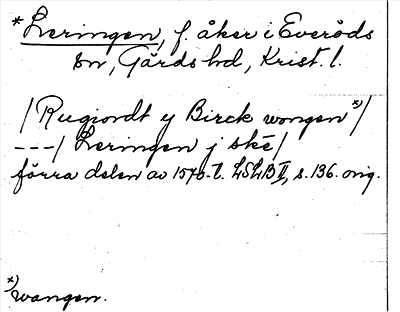 *Leringen, f. åker i Everöds
sn, Gärds hd, Krist. l.
/ Rugiordt y Birck wongen x)/
---/ Leringen j skē/
förra delen av 1570-t. LSLB II, s. 136. orig.
x) wangen.